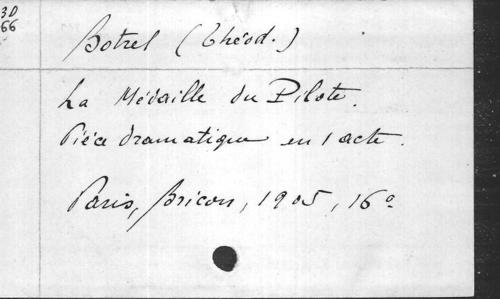 3D
66
Botrel (Théod.)
La Médaille du Pilote.
Pièce dramatique en 1 acte.
Paris, Bricon, 1905, 16º